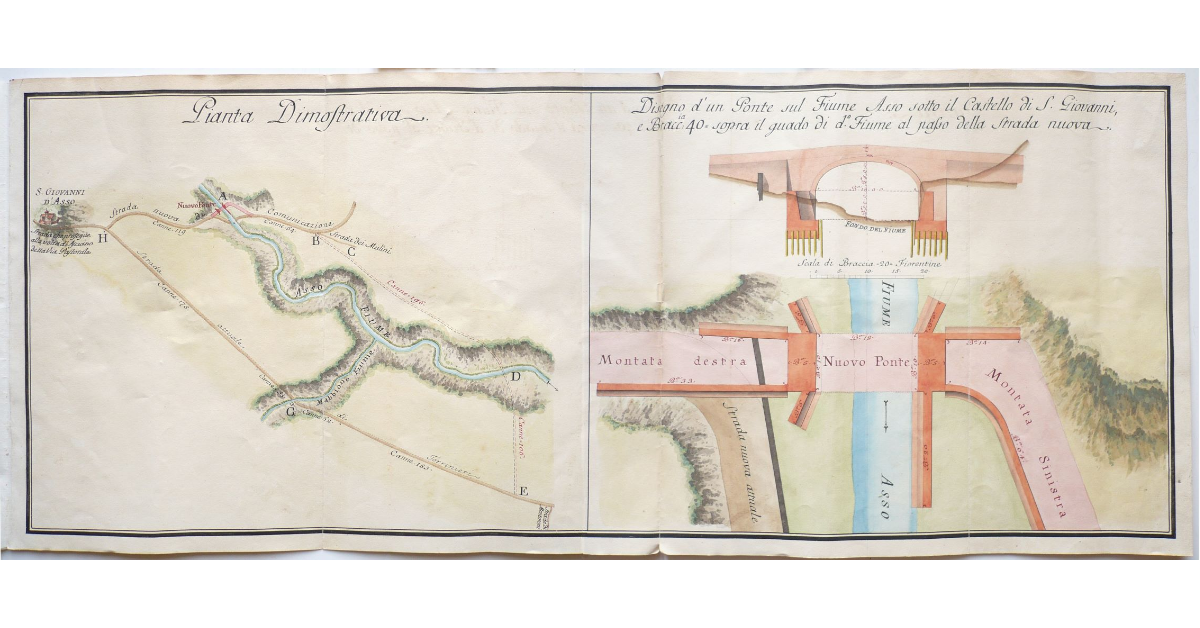 Pianta Dimostrativa.
S. GIOVANNI
D'ASSO
Strada nuova
Canne 119
H
A
Nuovo Ponte
Comunicazione
Canne 84
B
Strada dei Mulini
C
Canne 196
Asso
FIUME
D
Mabbione Fiume
Strada attuale
G
Canne 18
Canne 163
Torrenieri
Canne 106
E
Disegno d'un Ponte sul Fiume Asso sotto il Castello di S. Giovanni,
e Braccia 40 sopra il guado di do. Fiume al passo della Strada nuova.
FONDO DEL FIUME
Scala di Braccia 20 Fiorentine
5 10 15 20
FIUME
ASSO
Montata destra
Nuovo Ponte
Montata Sinistra
Strada nuova attuale